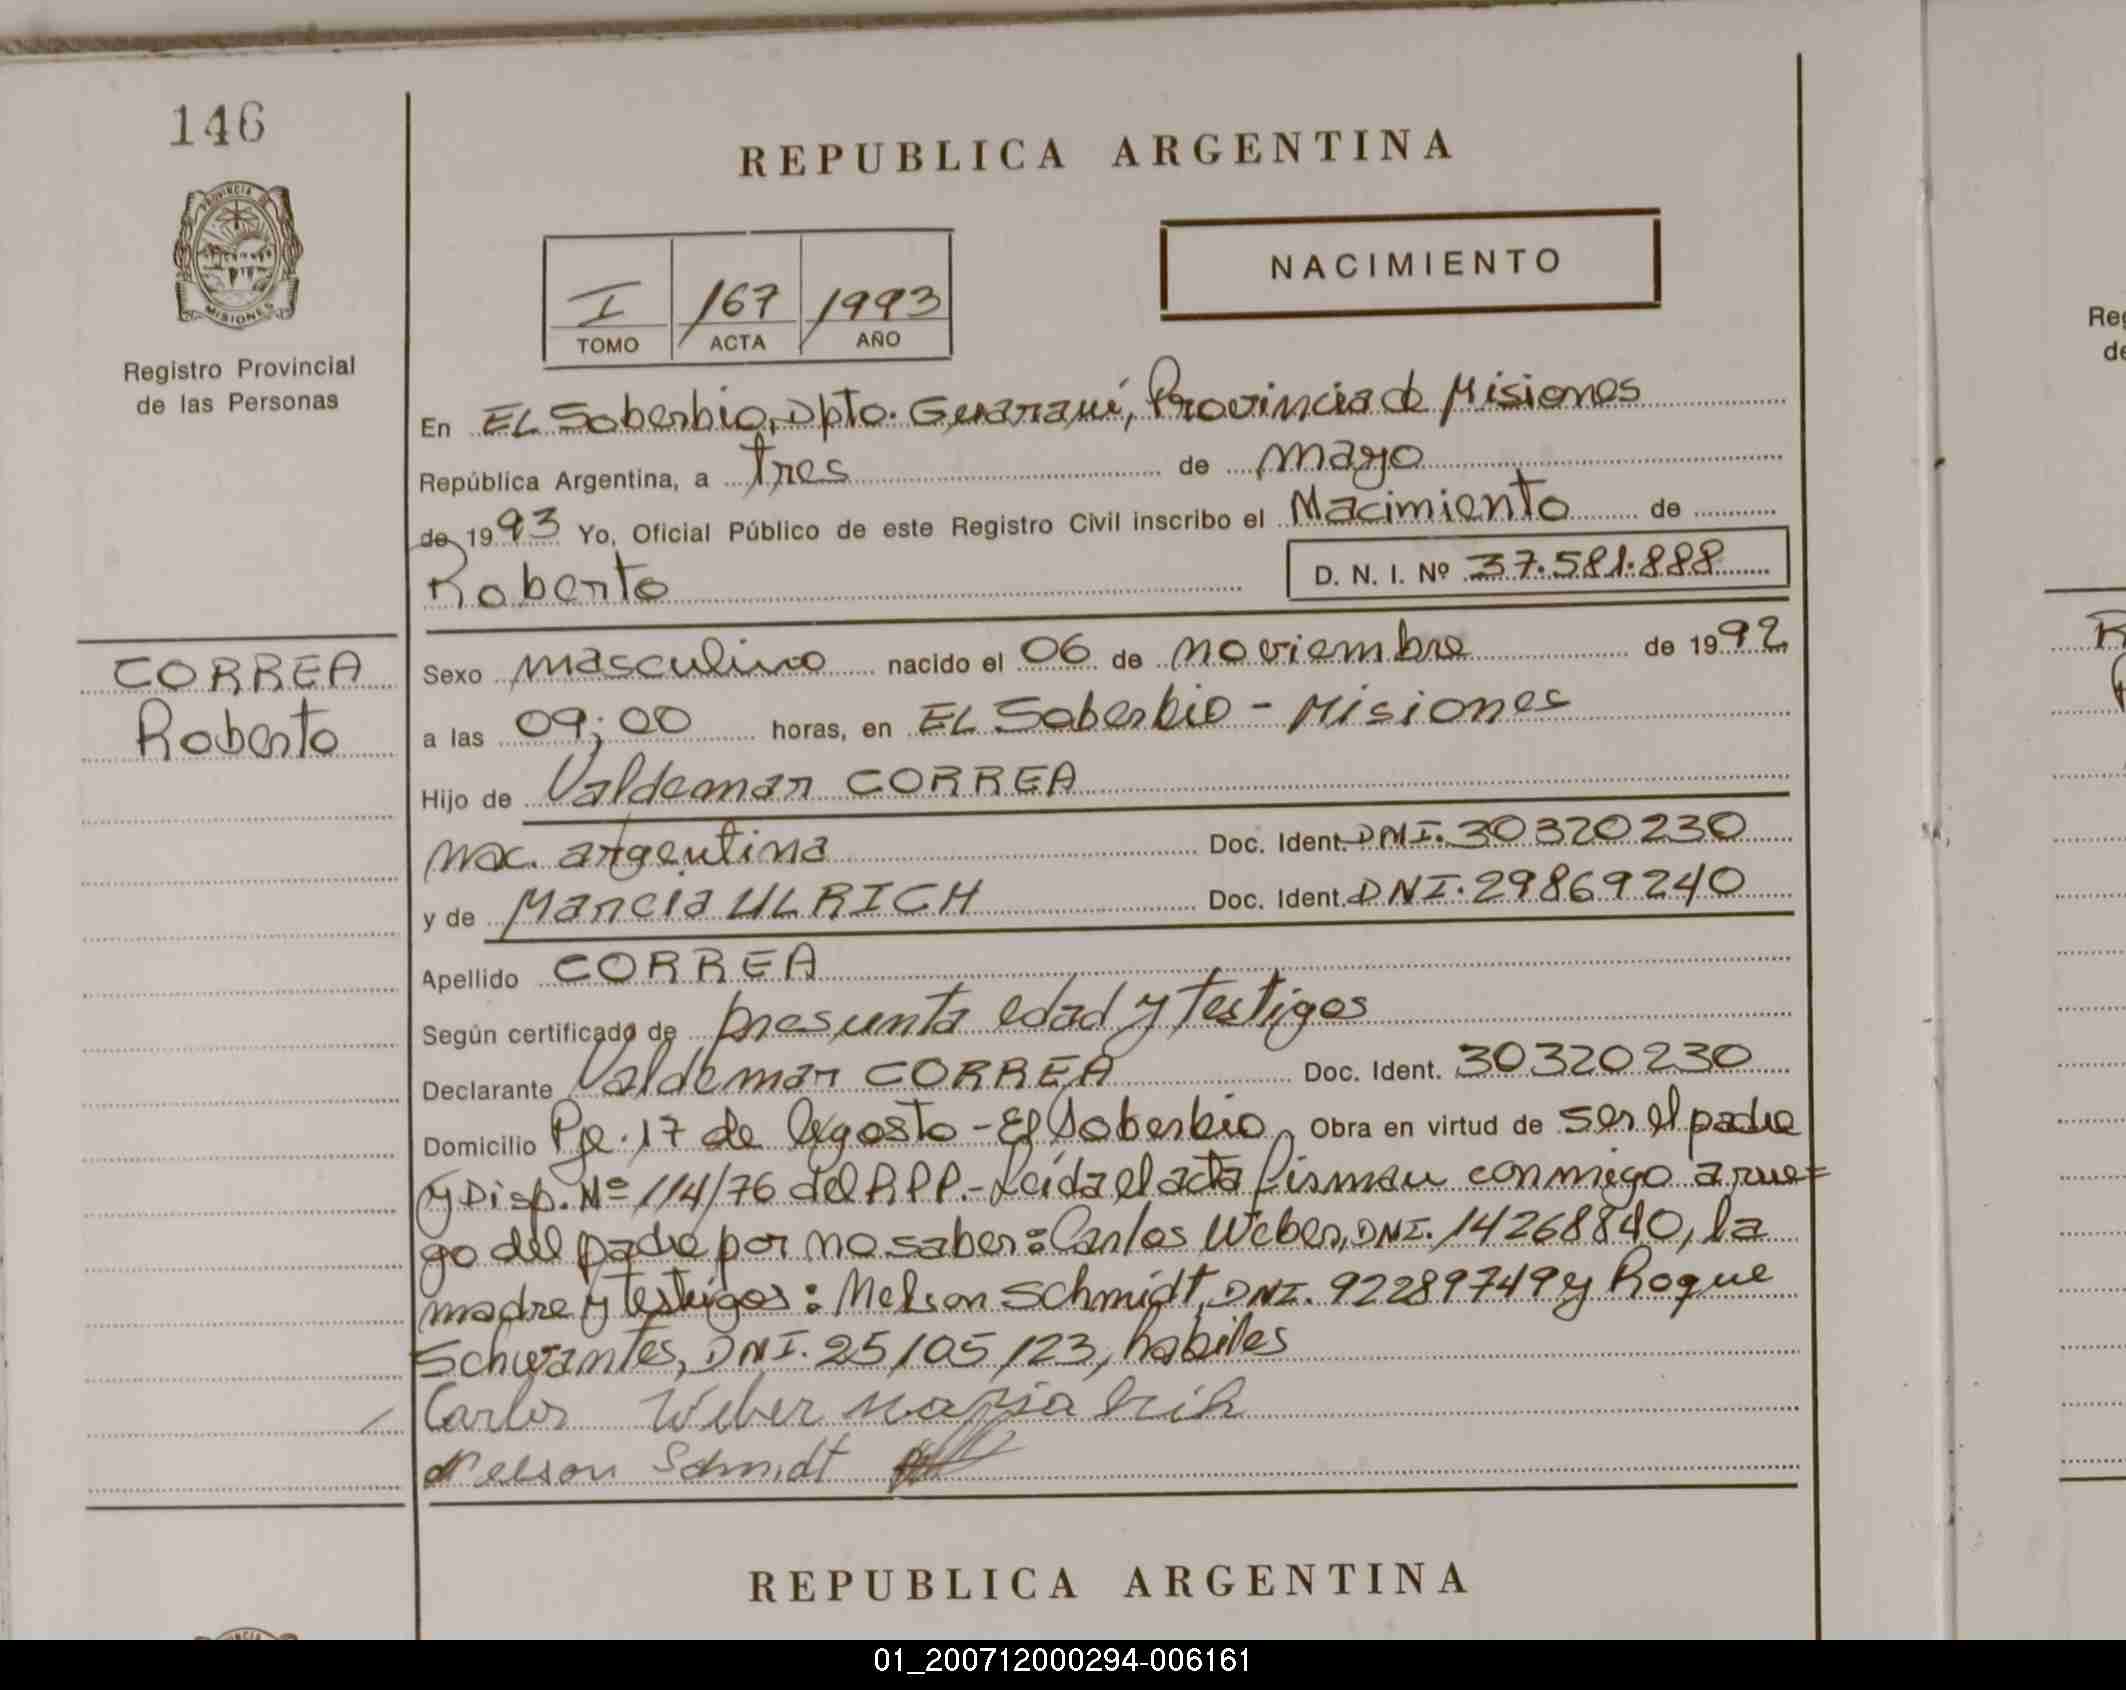 146
REPUBLICA ARGENTINA
PROVINCIA DE
MISIONES
NACIMIENTO
I 167 1993
TOMO ACTA AÑO
Registro Provincial
de las Personas
Reg
de
En EL Soberbio, Dpto. Guaraní, Provincia de Misiones
República Argentina, a tres de mayo
de 1993 Yo, Oficial Público de este Registro Civil inscribo el Nacimiento de
Roberto D. N. I. Nº 37.581.888
CORREA
Roberto
Sexo masculino nacido el 06 de noviembre de 1992
a las 09;00 horas, en EL Soberbio - Misiones
Hijo de Valdemar CORREA
nac. argentina Doc. Ident. DNI. 30320230
y de Marcia ULRICH Doc. Ident. DNI. 29869240
Apellido CORREA
Según certificado de presunta edad y testigos
Declarante Valdemar CORREA Doc. Ident. 30320230
Domicilio Pje. 17 de Agosto - El Soberbio Obra en virtud de ser el padre
y Disp. Nº 114/76 del RPP.- Leída el acta firman conmigo a rue=
go del padre por no saber: Carlos Weber, DNI. 14268840, la
madre y testigos: Nelson Schmidt, DNI. 92289749 y Roque
Schwantes, DNI. 25105123, habiles
Carlos Weber
Nelson Schmidt
REPUBLICA ARGENTINA
01_200712000294-006161